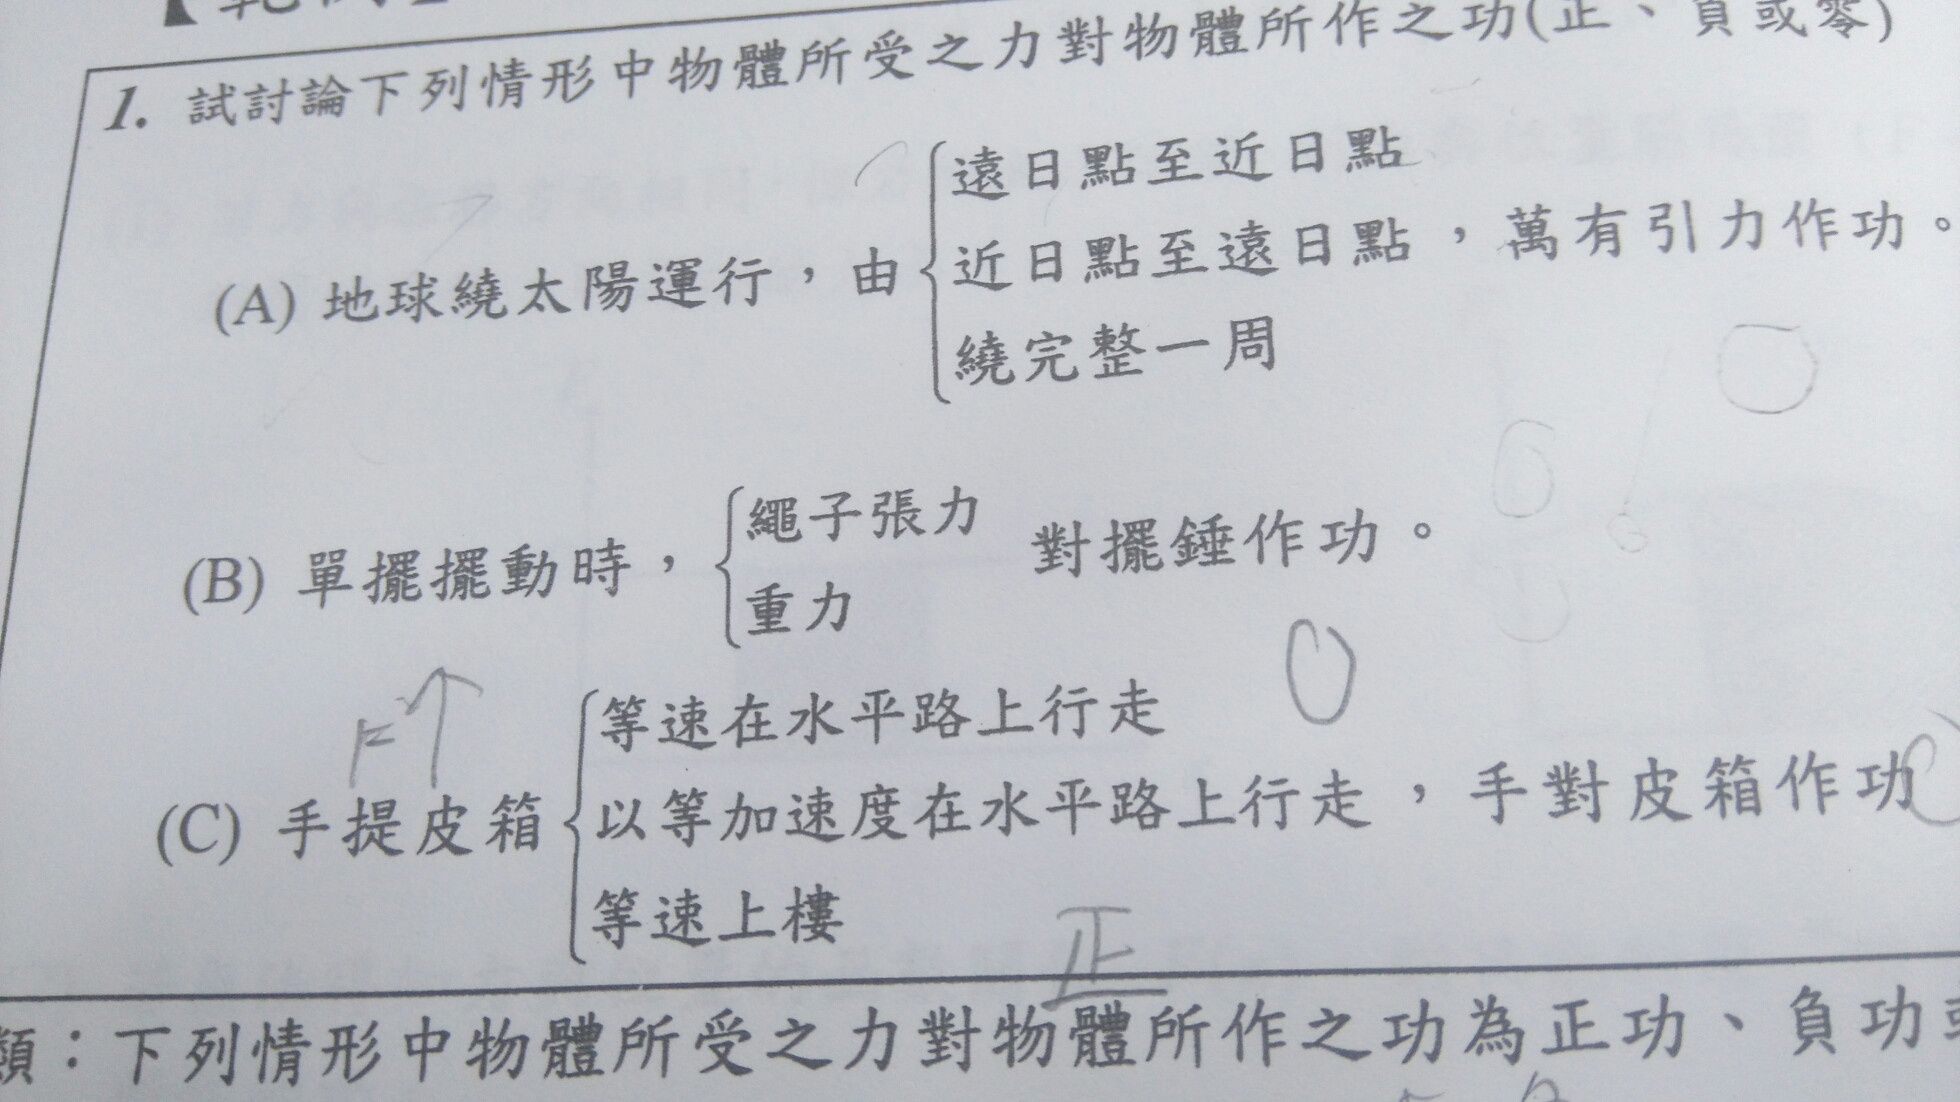 1. 試討論下列情形中物體所受之力對物體所作之功(正、負或零)
遠日點至近日點
(A) 地球繞太陽運行，由 近日點至遠日點，萬有引力作功。
繞完整一周
繩子張力
(B) 單擺擺動時， 對擺錘作功。
重力
0
F ↑
等速在水平路上行走
(C) 手提皮箱 以等加速度在水平路上行走，手對皮箱作功
等速上樓
正
類：下列情形中物體所受之力對物體所作之功為正功、負功